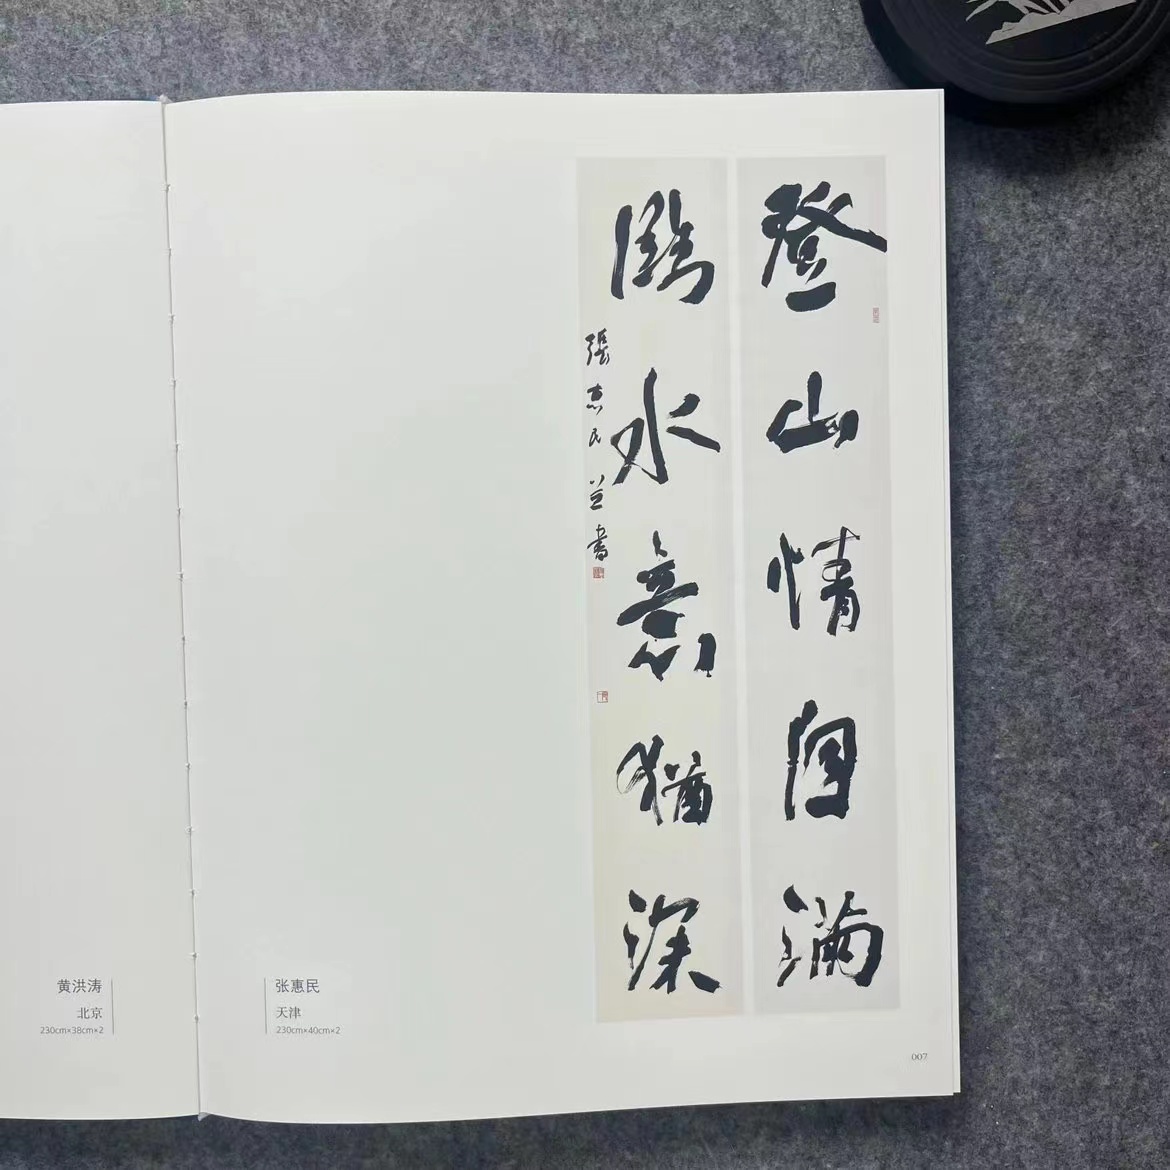 登山情自滿
臨水意猶深
張惠民並書
黄洪涛
北京
230cm×38cm×2
张惠民
天津
230cm×40cm×2
007